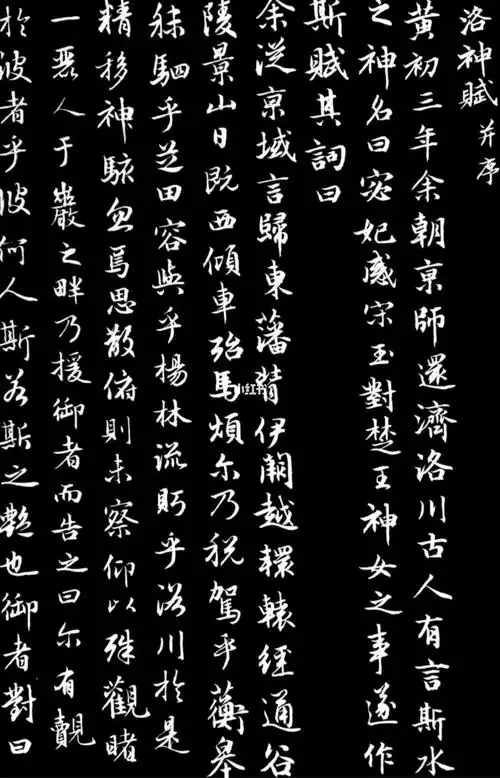 洛神賦 并序
黃初三年余朝亰師還濟洛川古人有言斯水
之神名曰宓妃感宋玉對楚王神女之事遂作
斯賦其詞曰
余從亰域言歸東藩背伊闕越轘轅經通谷
陵景山日既西傾車殆馬煩尔乃税駕乎蘅皋
秣駟乎芝田容與乎楊林流眄乎洛川於是
精移神駭忽焉思散俯則未察仰以殊觀睹
一麗人于巖之畔乃援御者而告之曰尔有覿
於彼者乎彼何人斯若斯之艷也御者對曰
小红书